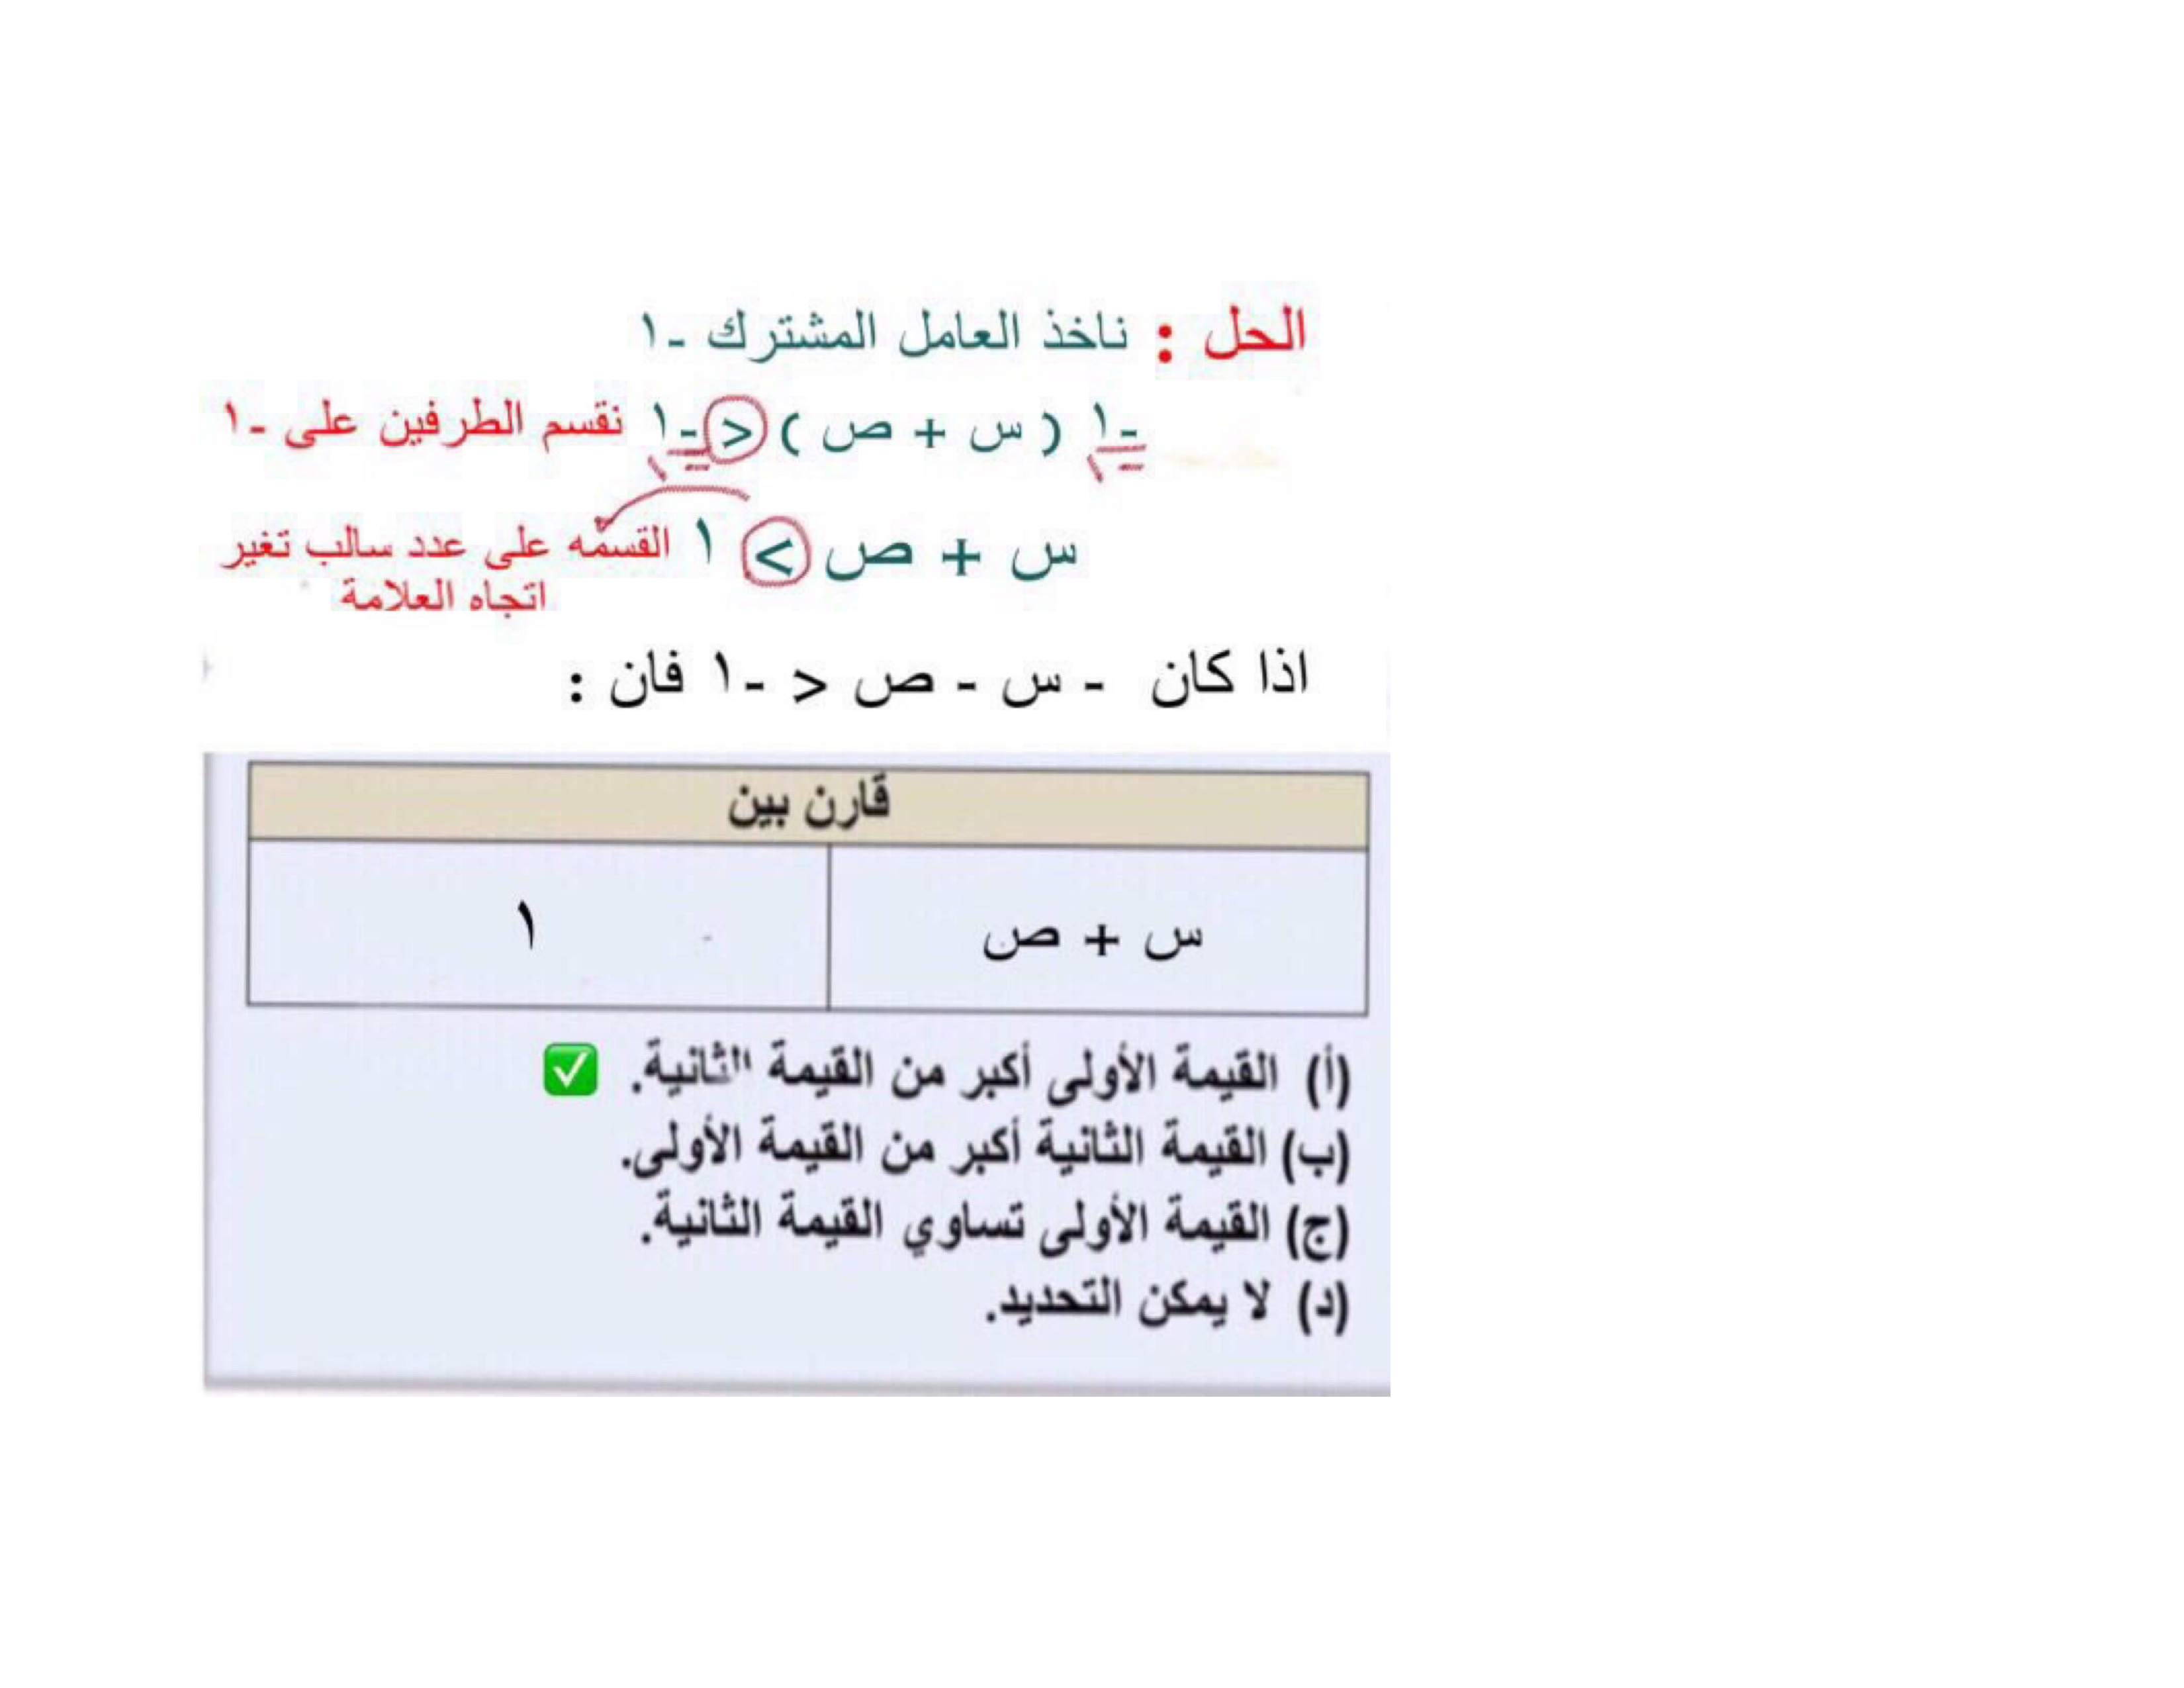 الحل : ناخذ العامل المشترك -١
-١ ( س + ص ) < -١ نقسم الطرفين على -١
-١ -١
س + ص > ١ القسمه على عدد سالب تغير
اتجاه العلامة
اذا كان - س - ص < -١ فان :
قارن بين
س + ص ١
(أ) القيمة الأولى أكبر من القيمة الثانية. ✅
(ب) القيمة الثانية أكبر من القيمة الأولى.
(ج) القيمة الأولى تساوي القيمة الثانية.
(د) لا يمكن التحديد.